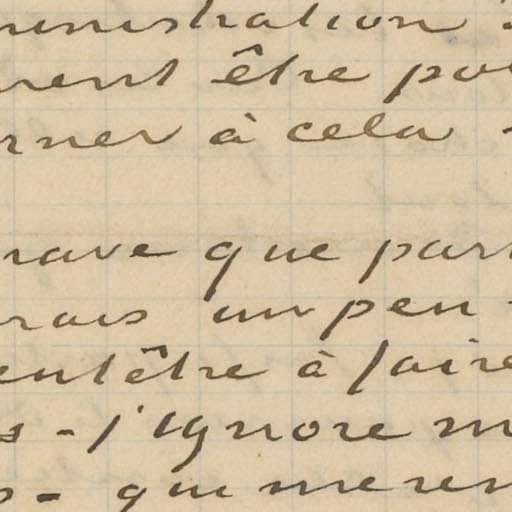 ministration
ment être pou
rner à cela
rave que par
rais un peu
entêtre à faire
s - j'ignore m
s - qui me ren